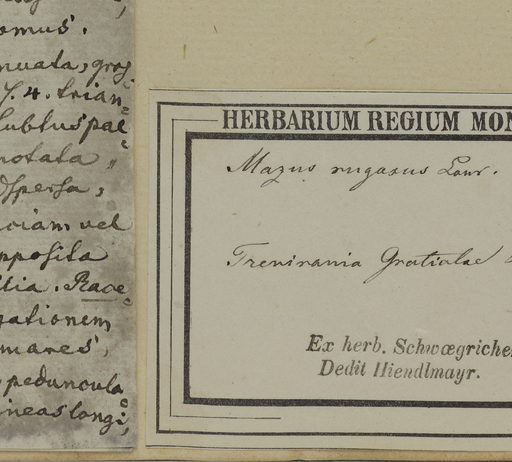 omus.
nuata, grog
7. 4. trian-
subtus pal-
notata,,
dspersa,
uciam vel
pposita
tia. Race-
gationem
mares,
peduncula
ineas longi,
HERBARIUM REGIUM MON
Mazus rugosus Lour.
Trevirania Gratiolae
Ex herb. Schwœgriche
Dedit Hiendlmayr.